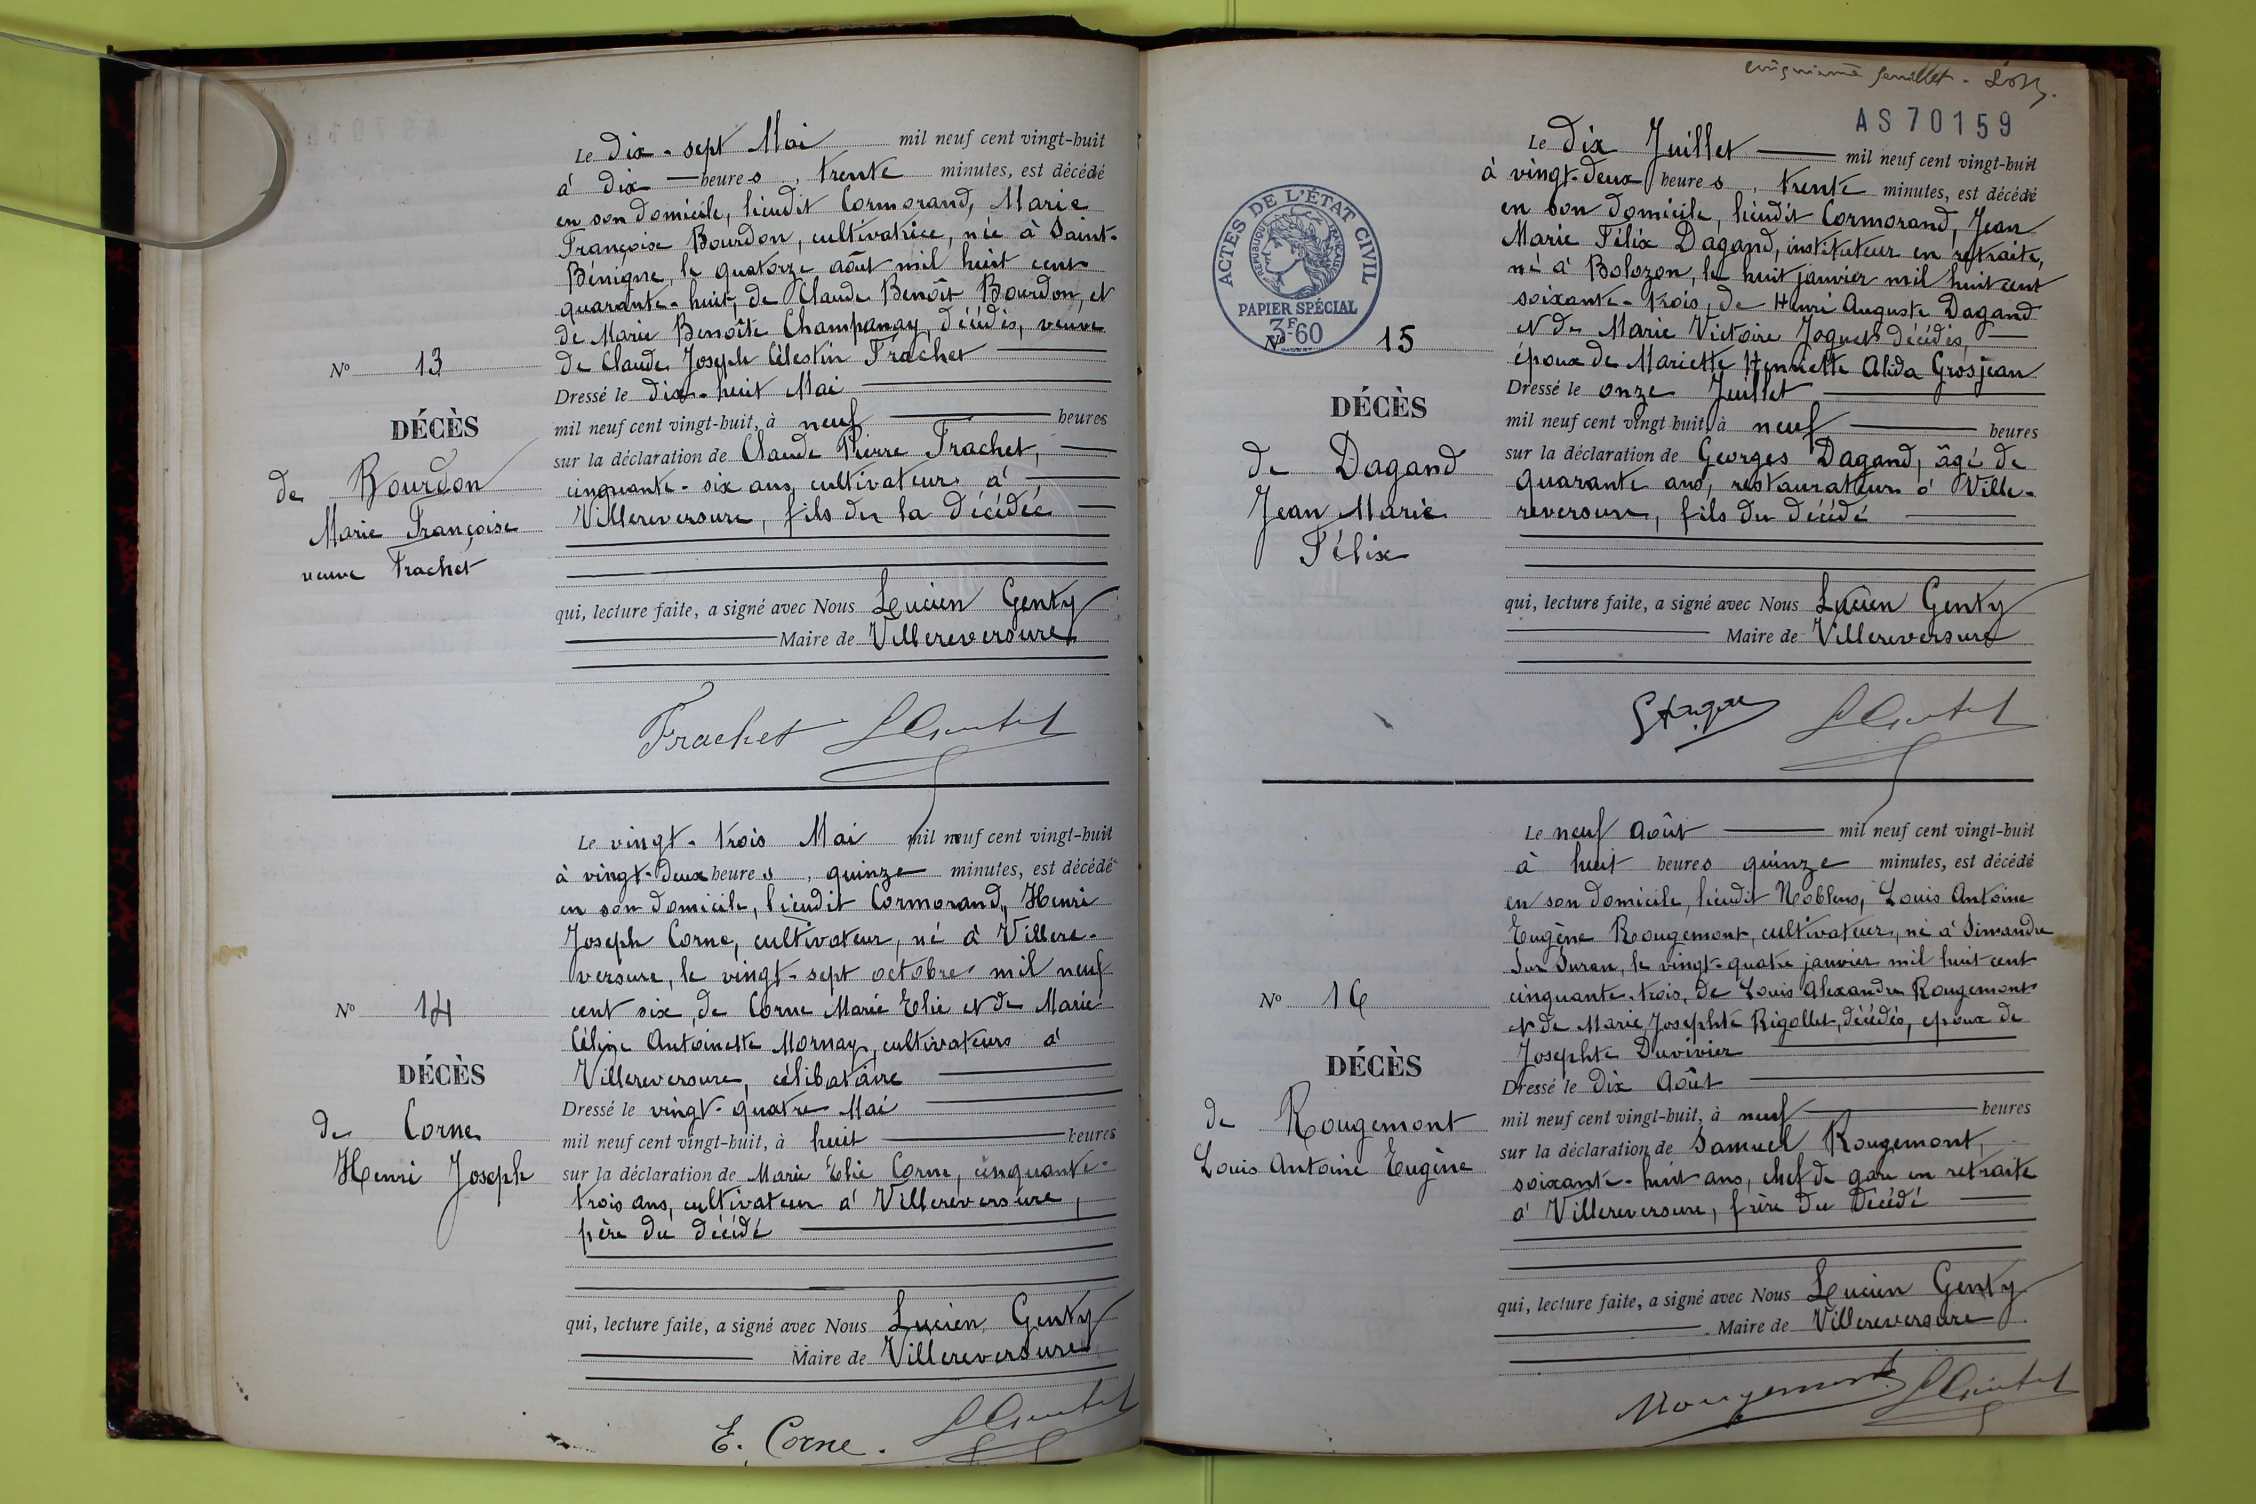 Le dix-sept Mai mil neuf cent vingt-huit
à dix heures, trente minutes, est décédé
en son domicile, lieudit Cormorand, Marie
Françoise Bourdon, cultivatrice, née à Saint-
Bénigne, le quatorze août mil huit cent
quarante-huit, de Claude Benoît Bourdon, et
de Marie Benoîte Champanay, décédés, veuve
de Claude Joseph Célestin Frachet
N° 13
Dressé le dix-huit Mai
DÉCÈS
mil neuf cent vingt-huit, à neuf heures
de Bourdon
Marie Françoise
veuve Frachet
sur la déclaration de Claude Pierre Frachet,
cinquante-six ans, cultivateur à
Villereversure, fils de la décédée
qui, lecture faite, a signé avec Nous Lucien Genty
Maire de Villereversure
Frachet
Le vingt-trois Mai mil neuf cent vingt-huit
à vingt-deux heures, quinze minutes, est décédé
en son domicile, lieudit Cormorand, Henri
Joseph Corne, cultivateur, né à Villere-
versure, le vingt-sept octobre mil neuf
cent six, de Corne Marie Elie et de Marie
Antoinette Mornay, cultivateurs à
Villereversure, célibataire
N° 14
DÉCÈS
de Corne
Henri Joseph
Dressé le vingt-quatre Mai
mil neuf cent vingt-huit, à huit heures
sur la déclaration de Marie Elie Corne, cinquante-
trois ans, cultivateur à Villereversure,
père du décédé
qui, lecture faite, a signé avec Nous Lucien Genty
Maire de Villereversure
E. Corne.
feuillet
AS 70159
ACTES DE L'ÉTAT CIVIL
RÉPUBLIQUE FRANÇAISE
PAPIER SPÉCIAL
3F60
Le dix Juillet mil neuf cent vingt-huit
à vingt-deux heures, trente minutes, est décédé
en son domicile, lieudit Cormorand, Jean
Marie Félix Dagand, instituteur en retraite,
né à Bolozon, le huit janvier mil huit cent
soixante-trois, de Henri Auguste Dagand
et de Marie Victoire Joguet décédés,
époux de Mariette Henriette Alida Grosjean
N° 15
DÉCÈS
de Dagand
Jean Marie
Félix
Dressé le onze Juillet
mil neuf cent vingt huit, à neuf heures
sur la déclaration de Georges Dagand, âgé de
quarante ans, restaurateur à Ville-
reversure, fils du décédé
qui, lecture faite, a signé avec Nous Lucien Genty
Maire de Villereversure
Le neuf Août mil neuf cent vingt-huit
à huit heures quinze minutes, est décédé
en son domicile, lieudit Noblens, Louis Antoine
Eugène Rougemont, cultivateur, né à Simandre
sur Suran, le vingt-quatre janvier mil huit cent
cinquante-trois, de Louis Alexandre Rougemont
et de Marie Josephte Rigollet, décédés, époux de
Josephte Duvivier
N° 16
DÉCÈS
de Rougemont
Louis Antoine Eugène
Dressé le dix Août
mil neuf cent vingt-huit, à neuf heures
sur la déclaration de Samuel Rougemont,
soixante-huit ans, chef de gare en retraite
à Villereversure, frère du décédé
qui, lecture faite, a signé avec Nous Lucien Genty
Maire de Villereversure
Rougemont